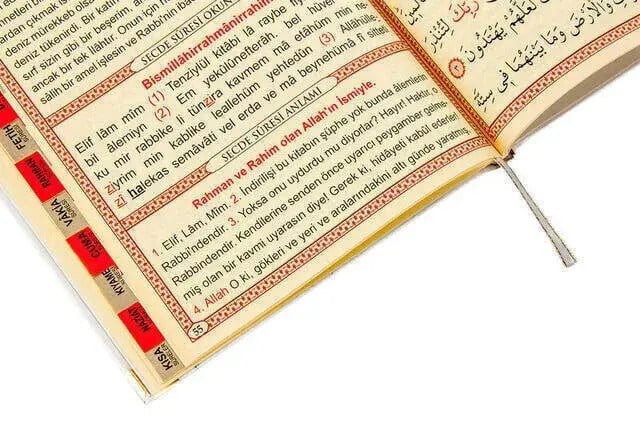 deniz tükenirdi. Bir katı
sırf sizin gibi bir beşerim, an
ancak bir tek ilahtır. Onun için
salih bir amel işlesin ve Rabb'inin ibad
SECDE SÛRESİ OKUN
Bismillâhirrahmânirrahîm
Elif lâm mîm (1) Tenzîlül kitâbi lâ raybe
bil âlemiyn (2) Em yekûlûnefterâh. bel hüvel
ku mir rabbike li tünzira kavmem mâ etâhüm min
ziyrim min kablike leallehüm yehtedûn (3) Allâhülle-
zî halekas semâvâti vel erda ve mâ beynehümâ fî sitteti
SECDE SÛRESİ ANLAMI
Rahman ve Rahim olan Allah'ın İsmiyle.
1. Elif, Lâm, Mîm. 2. İndirilişi bu kitabın şüphe yok bunda âlemlerin
Rabbi'ndendir. 3. Yoksa onu uydurdu mu diyorlar? Hayır! Haktır, o
Rabbindendir. Kendilerine senden önce uyarıcı peygamber gelme-
miş olan bir kavmi uyarasın diye! Gerek ki, hidâyeti kabul ederler
4. Allah O ki, gökleri ve yeri ve aralarındakini altı günde yaratmış
55
FETİH
RAHMAN
VÂKIA
CUMA
KIYAME
NAZİAT
KISA
SÛRELER
رَبِّكَ لِتُنْذِرَ
لَعَلَّهُمْ يَهْتَدُونَ
وَالْأَرْضَ وَمَا بَيْنَهُمَا فِي سِتَّةِ